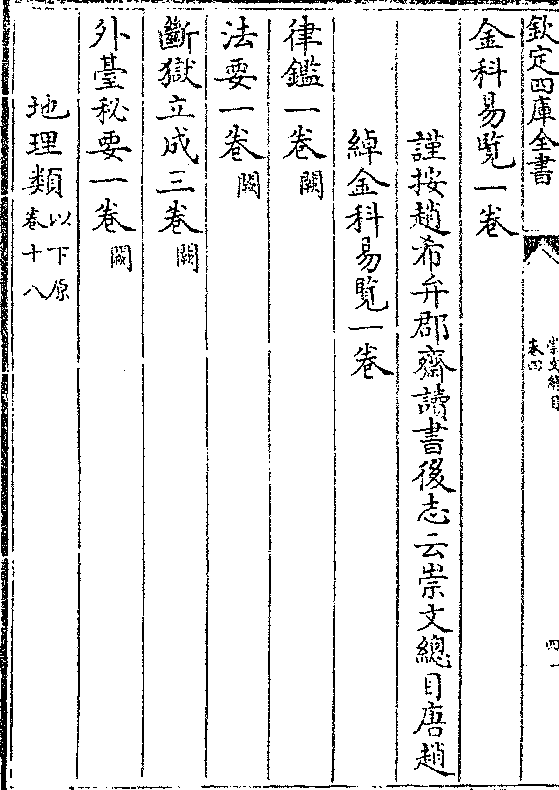 欽定四庫全書
崇文總目
卷四
四一
金科易覽一卷
謹按趙希弁郡齋讀書後志云崇文總目唐趙
綽金科易覽一卷
律鑑一卷闕
法要一卷闕
斷獄立成三卷闕
外臺秘要一卷闕
地理類以下原卷十八